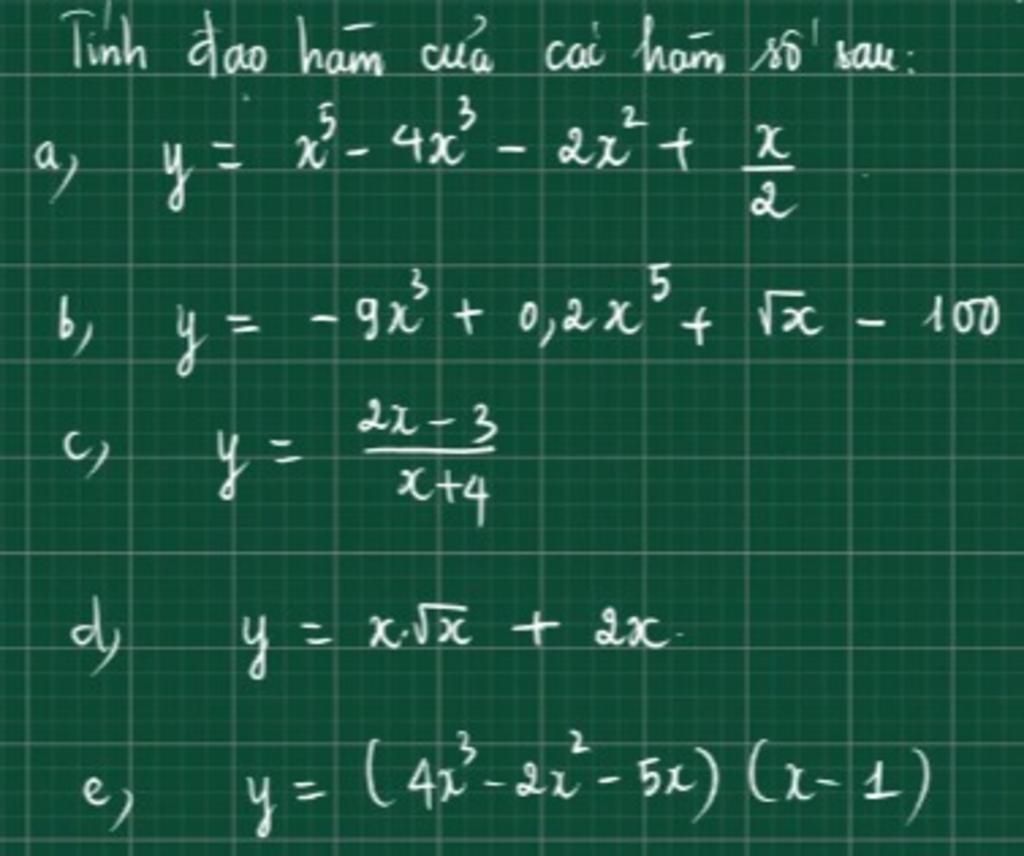 Tính đạo hàm của các hàm số sau:
a, y = x⁵ - 4x³ - 2x² + x/2
b, y = - 9x³ + 0,2x⁵ + √x - 100
c, y = (2x - 3)/(x+4)
d, y = x.√x + 2x.
e, y = (4x³ - 2x² - 5x) (x - 1)